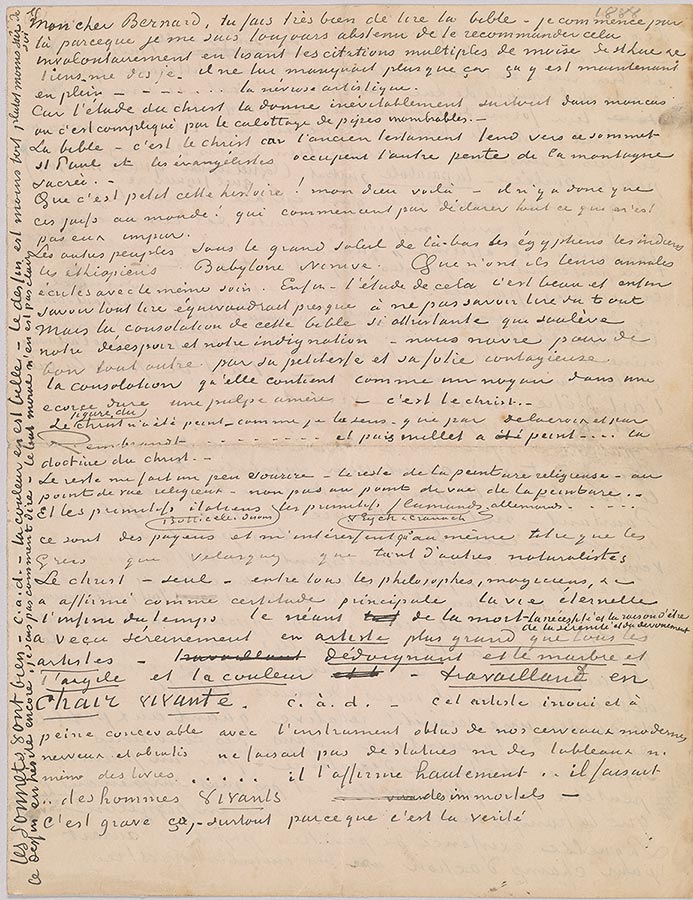 1888
mon cher Bernard, tu fais très bien de lire la bible – je commence par
là parceque je me suis toujours abstenu de te recommander cela
involontairement en lisant tes citations multiples de moïse de St Luc &c
tiens me dis je. il ne lui manquait plus que ça. ça y est maintenant
en plein – – . . . . . . la nevrose artistique.
Car l'étude du christ la donne inévitablement surtout dans mon cas
ou c'est compliqué par le culottage de pipes innombrables. –
La bible – c'est le Christ car l'ancien testament tend vers ce sommet
St Paul et les évangelistes occupent l'autre pente de la montagne
sacrée. –
Que c'est petit cette histoire! mon dieu voilà – il n'y a donc que
ces juifs au monde! qui commencent par déclarer tout ce que n'est
pas eux impur.
les autres peuples sous le grand soleil de là-bas les égyptiens les indiens
les ethiopiens Babylone Ninive. Que n'ont ils leurs annales
écrites avec le même soin. Enfin – l'étude de cela c'est beau et enfin
savoir tout lire équivaudrait presque à ne pas savoir lire du tout
Mais la consolation de cette bible si attristante qui soulève
notre désespoir et notre indignation – nous navre pour de
bon tout outré par sa petitesse et sa folie contagieuse.
la consolation qu'elle contient comme un noyau dans une
ecorce dure une pulpe amère – c'est le Christ. –
figure du
La Christ n'a été peint – comme je le sens. que par Delacroix et par
Rembrandt – – – . . . . . et puis Millet a peint . . . . la
doctrine du Christ. –
Le reste me fait un peu sourire – le reste de la peinture religieuse – au
point de vue religieux – non pas au point de vue de la peinture. –
Et les primitifs italiens les primitifs flamands, allemands – . . . . –
Botticelli disons
V Eyck & Cranach
ce sont des payens et m'intéressent qu'au même titre que les
Grecs que Velasquez que tant d'autres naturalistes
Le Christ – seul – entre tous les philosophes, magiciens, &c
a affirmé comme certitude principale la vie éternelle
l'infini du temps le néant de la mort – la nécessité et la raison d'être
de la sérénité et du dévouement
a vécu sereinement en artiste plus grand que tous les
artistes – travaillant dédaignant et le marbre et
l'argile et la couleur – travaillant en
chair vivante. c. à. d. – cet artiste inouï et à
peine concevable avec l'instrument obtus de nos cerveaux modernes
nerveux et abrutis ne faisait pas de statues ni des tableaux ni
même des livres . . . . . il l'affirme hautement . . il faisait
. . des hommes vivants des immortels –
C'est grave ça, – surtout parceque c'est la vérité
les sonnets sont bien – c.a.d. – la couleur en est belle – le dessin est moins fort plutot moins sûr
ce dessin en hésite encore, je sais pas comment dire – le but moral n'en est pas clair